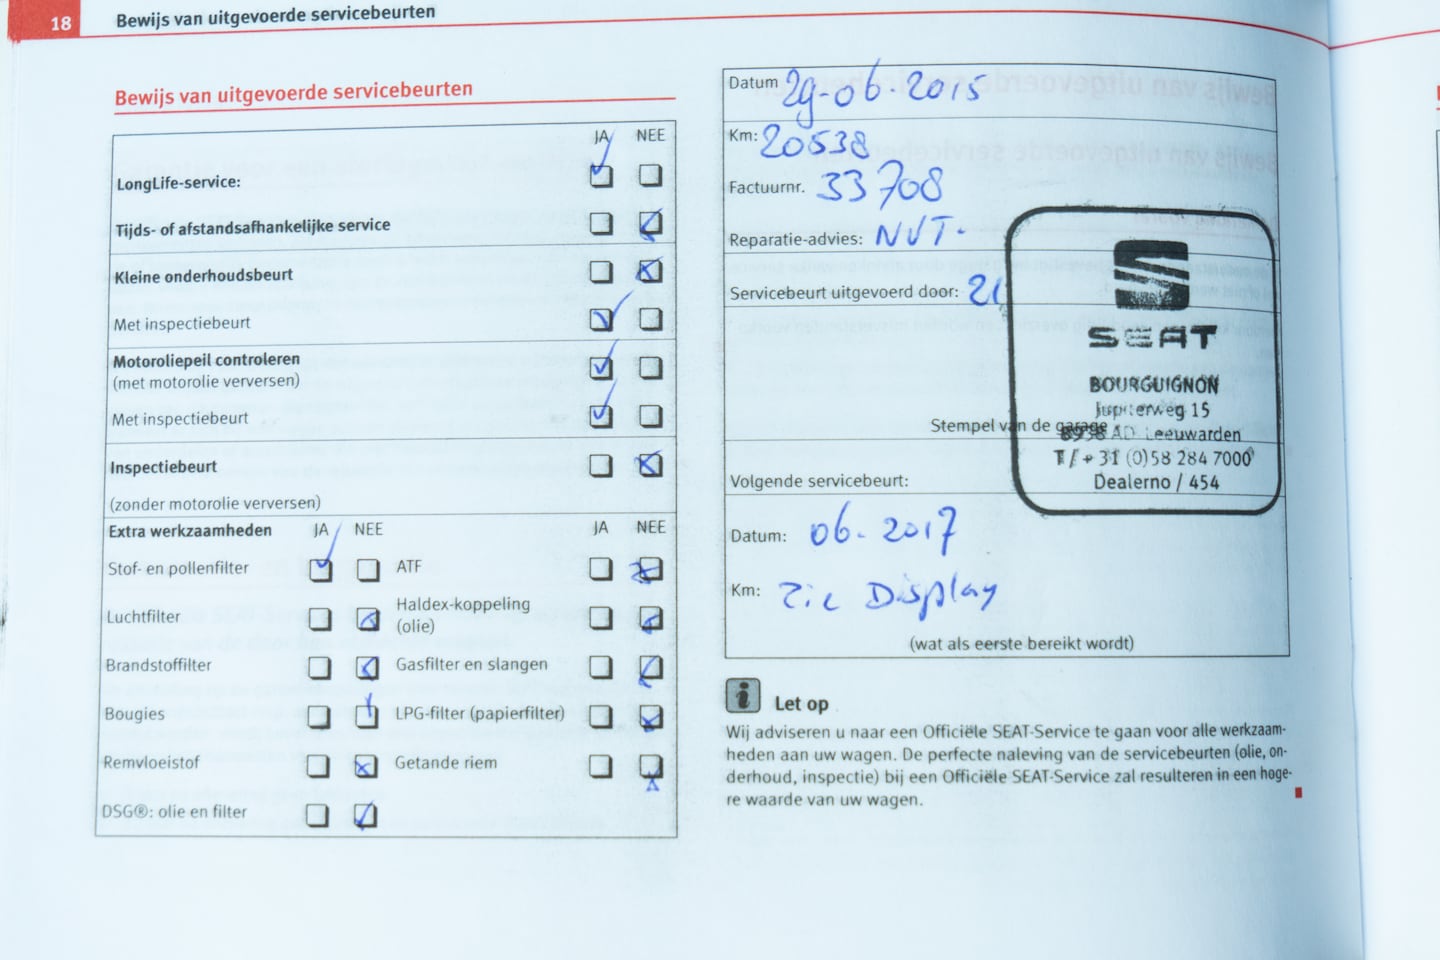 18
Bewijs van uitgevoerde servicebeurten
Bewijs van uitgevoerde servicebeurten
JA NEE
LongLife-service:
Tijds- of afstandsafhankelijke service
Kleine onderhoudsbeurt
Met inspectiebeurt
Motoroliepeil controleren
(met motorolie verversen)
Met inspectiebeurt
Inspectiebeurt
(zonder motorolie verversen)
Extra werkzaamheden JA NEE JA NEE
Stof- en pollenfilter ATF
Luchtfilter Haldex-koppeling
(olie)
Brandstoffilter Gasfilter en slangen
Bougies LPG-filter (papierfilter)
Remvloeistof Getande riem
DSG®: olie en filter
Datum 29-06-2015
Km: 20538
Factuurnr. 33708
Reparatie-advies: NVT-
Servicebeurt uitgevoerd door: 21
SEAT
BOURGUIGNON
Jupiterweg 15
Stempel van de garage
8938 AD Leeuwarden
T / + 31 (0)58 284 7000
Dealerno / 454
Volgende servicebeurt:
Datum: 06-2017
Km: Zie Display
(wat als eerste bereikt wordt)
Let op
Wij adviseren u naar een Officiële SEAT-Service te gaan voor alle werkzaam-
heden aan uw wagen. De perfecte naleving van de servicebeurten (olie, on-
derhoud, inspectie) bij een Officiële SEAT-Service zal resulteren in een hoge-
re waarde van uw wagen.